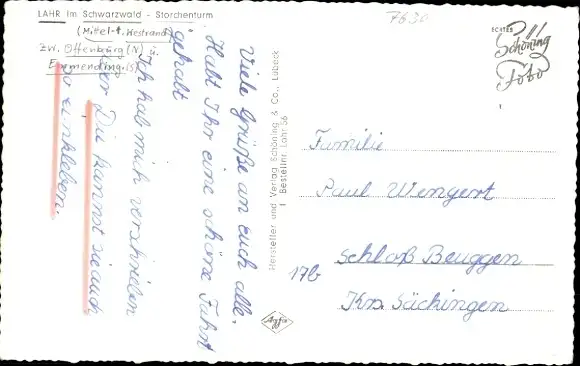 LAHR im Schwarzwald - Storchenturm
(Mittel-t. Westrand)
zw. Offenburg (N) u.
Emmendingen (S)
7630
ECHTES
Schöning
Foto
Viele Grüße an euch alle.
Habt Ihr eine schöne Fahrt
gehabt
Ich hab mich verschrieben
aber Du kannst sie auch
so einkleben.
Hersteller und Verlag Schöning & Co., Lübeck
Bestellnr. Lahr 56
Agfa
Familie
Paul Wengert
17b
Schloß Beuggen
Krs. Säckingen